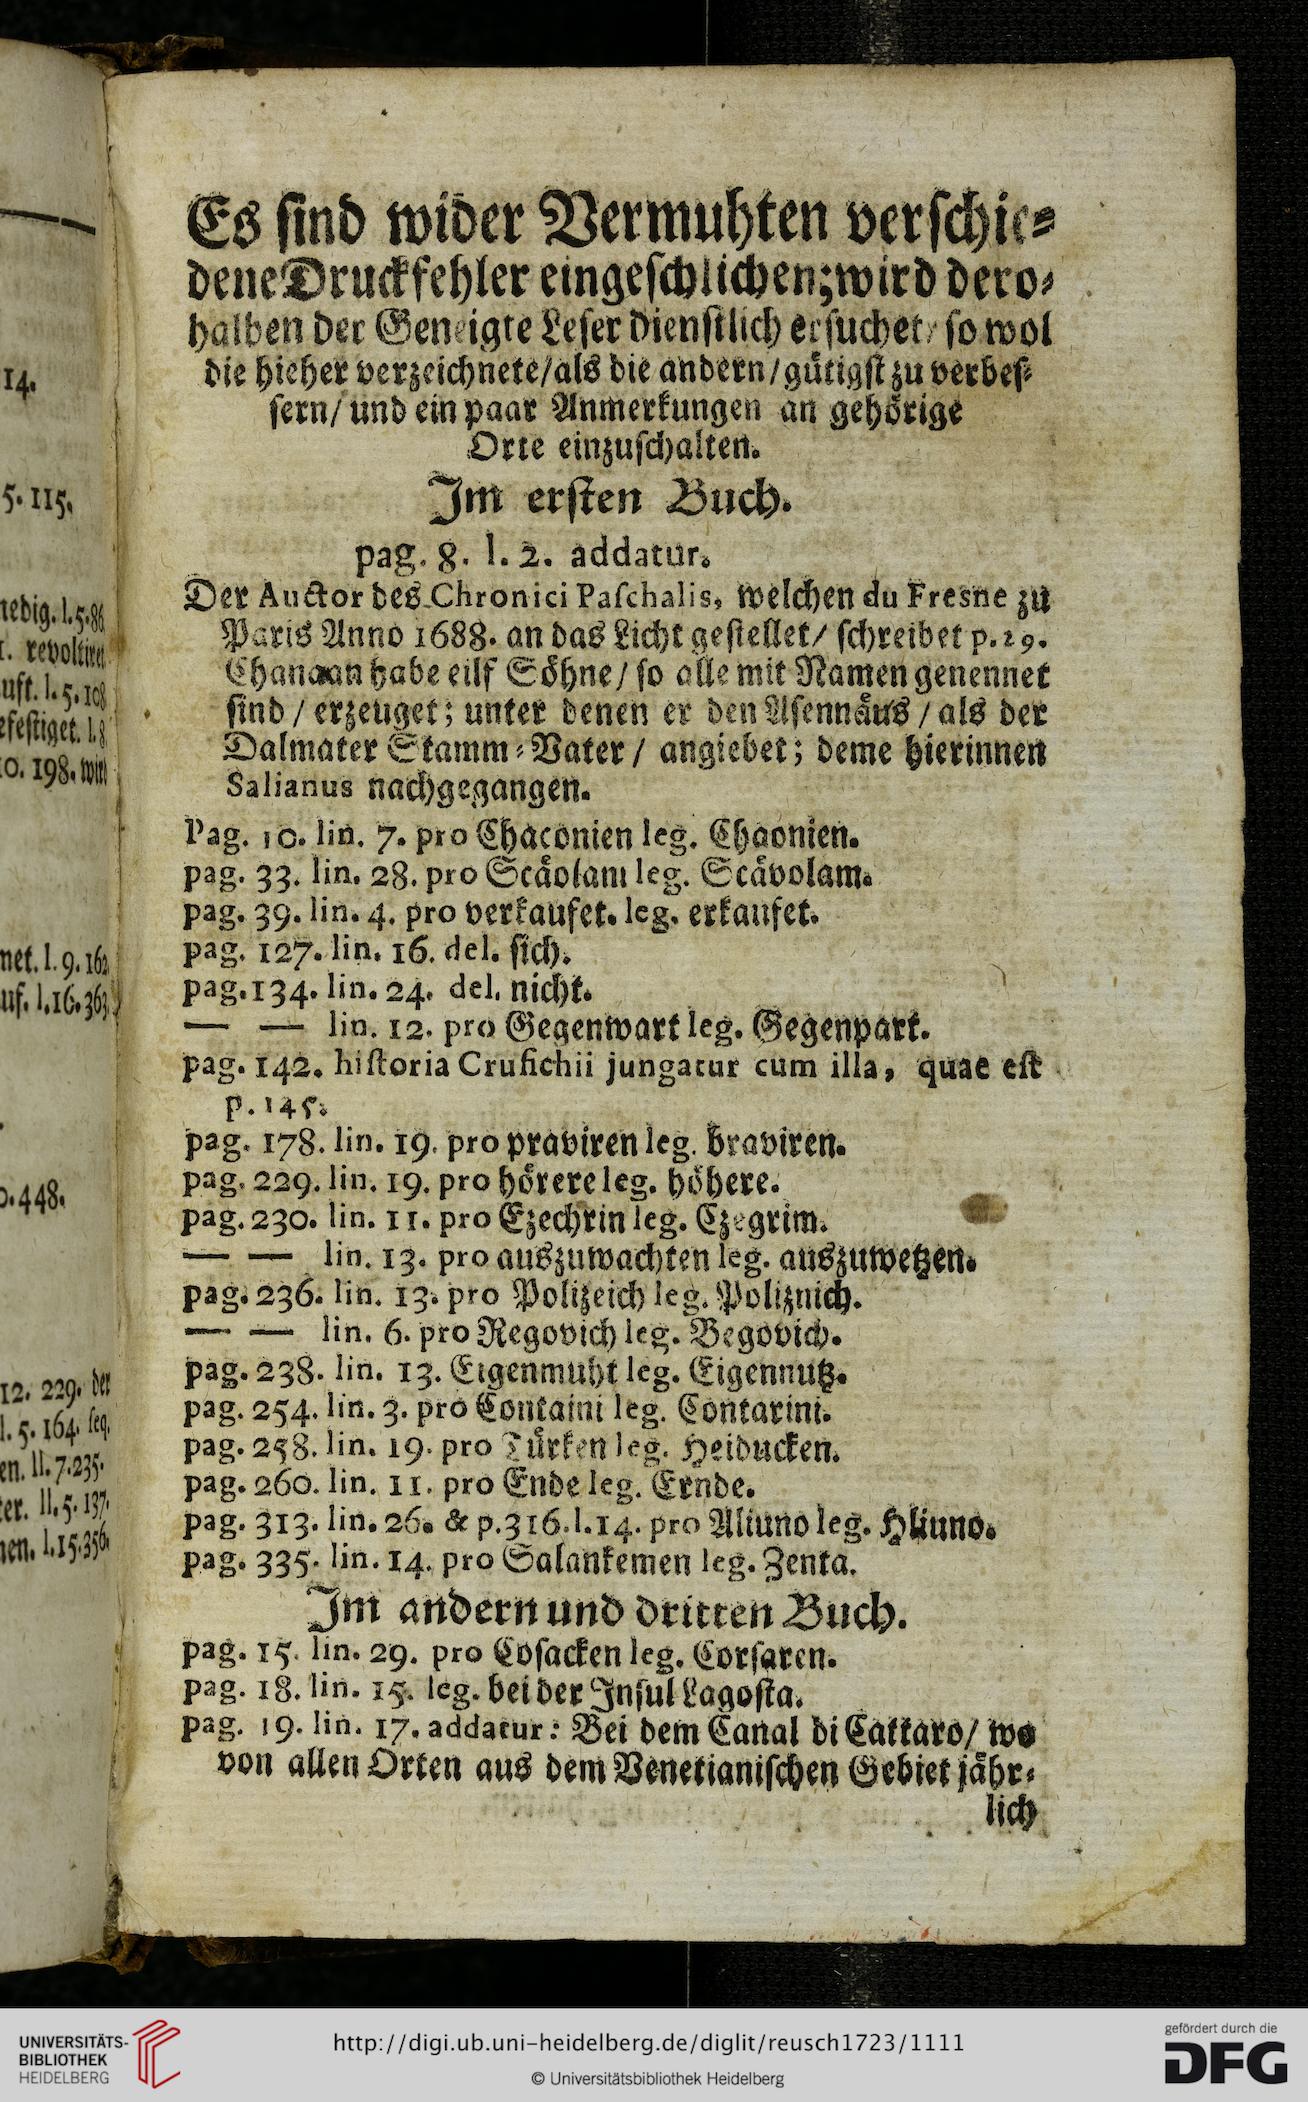 14.
5. 115.
nedig. l. 5. 86
revoltiret
uft. l. 5. 108
efestiget. l. 8
10. 198. wird
net. l. 9. 162
uf. l. 16. 363.
448.
12. 229. der
l. 5. 164. seq.
en. ll. 7. 235.
ter. ll. 5. 137.
nen. l. 15. 356.
Es ſind wider Vermuhten verſchie-
dene Druckfehler eingeſchlichen; wird dero-
halben der Geneigte Leſer dienſtlich erſuchet/ ſo wol
die hieher verzeichnete/ als die andern/ gütigſt zu verbeſ-
ſern/ und ein paar Anmerkungen an gehörige
Orte einzuſchalten.
Im erſten Buch.
pag. 8. l. 2. addatur.
Der Auctor des Chronici Paſchalis, welchen du Fresne zu
Paris Anno 1688. an das Licht geſtellet/ ſchreibet p. 29.
Chanaan habe eilf Söhne/ ſo alle mit Namen genennet
ſind/ erzeuget; unter denen er den Aſennäus/ als der
Dalmater Stamm-Vater/ angiebet; deme hierinnen
Salianus nachgegangen.
Pag. 10. lin. 7. pro Chaconien leg. Chaonien.
pag. 33. lin. 28. pro Scäolam leg. Scävolam.
pag. 39. lin. 4. pro verkaufet. leg. erkaufet.
pag. 127. lin. 16. del. ſich.
pag. 134. lin. 24. del. nicht.
— — lin. 12. pro Gegenwart leg. Gegenpart.
pag. 142. hiſtoria Cruſichii jungatur cum illa, quae eſt
p. 145.
pag. 178. lin. 19. pro praviren leg. braviren.
pag. 229. lin. 19. pro hörere leg. höhere.
pag. 230. lin. 11. pro Ezechrin leg. Czegrim.
— — lin. 13. pro auszuwachten leg. auszuwetzen.
pag. 236. lin. 13. pro Polizeich leg. Poliznich.
— — lin. 6. pro Regovich leg. Begovich.
pag. 238. lin. 13. Eigenmuht leg. Eigennutz.
pag. 254. lin. 3. pro Containi leg. Contarini.
pag. 258. lin. 19. pro Türken leg. Heiducken.
pag. 260. lin. 11. pro Ende leg. Ernde.
pag. 313. lin. 26. & p. 316. l. 14. pro Aliuno leg. Hliuno.
pag. 335. lin. 14. pro Salankemen leg. Zenta.
Im andern und dritten Buch.
pag. 15. lin. 29. pro Coſacken leg. Corſaren.
pag. 18. lin. 15. leg. bei der Inſul Lagoſta.
pag. 19. lin. 17. addatur: Bei dem Canal di Cattaro/ wo
von allen Orten aus dem Venetianiſchen Gebiet jähr-
lich
UNIVERSITÄTS-
BIBLIOTHEK
HEIDELBERG
http://digi.ub.uni-heidelberg.de/diglit/reusch1723/1111
© Universitätsbibliothek Heidelberg
gefördert durch die
DFG